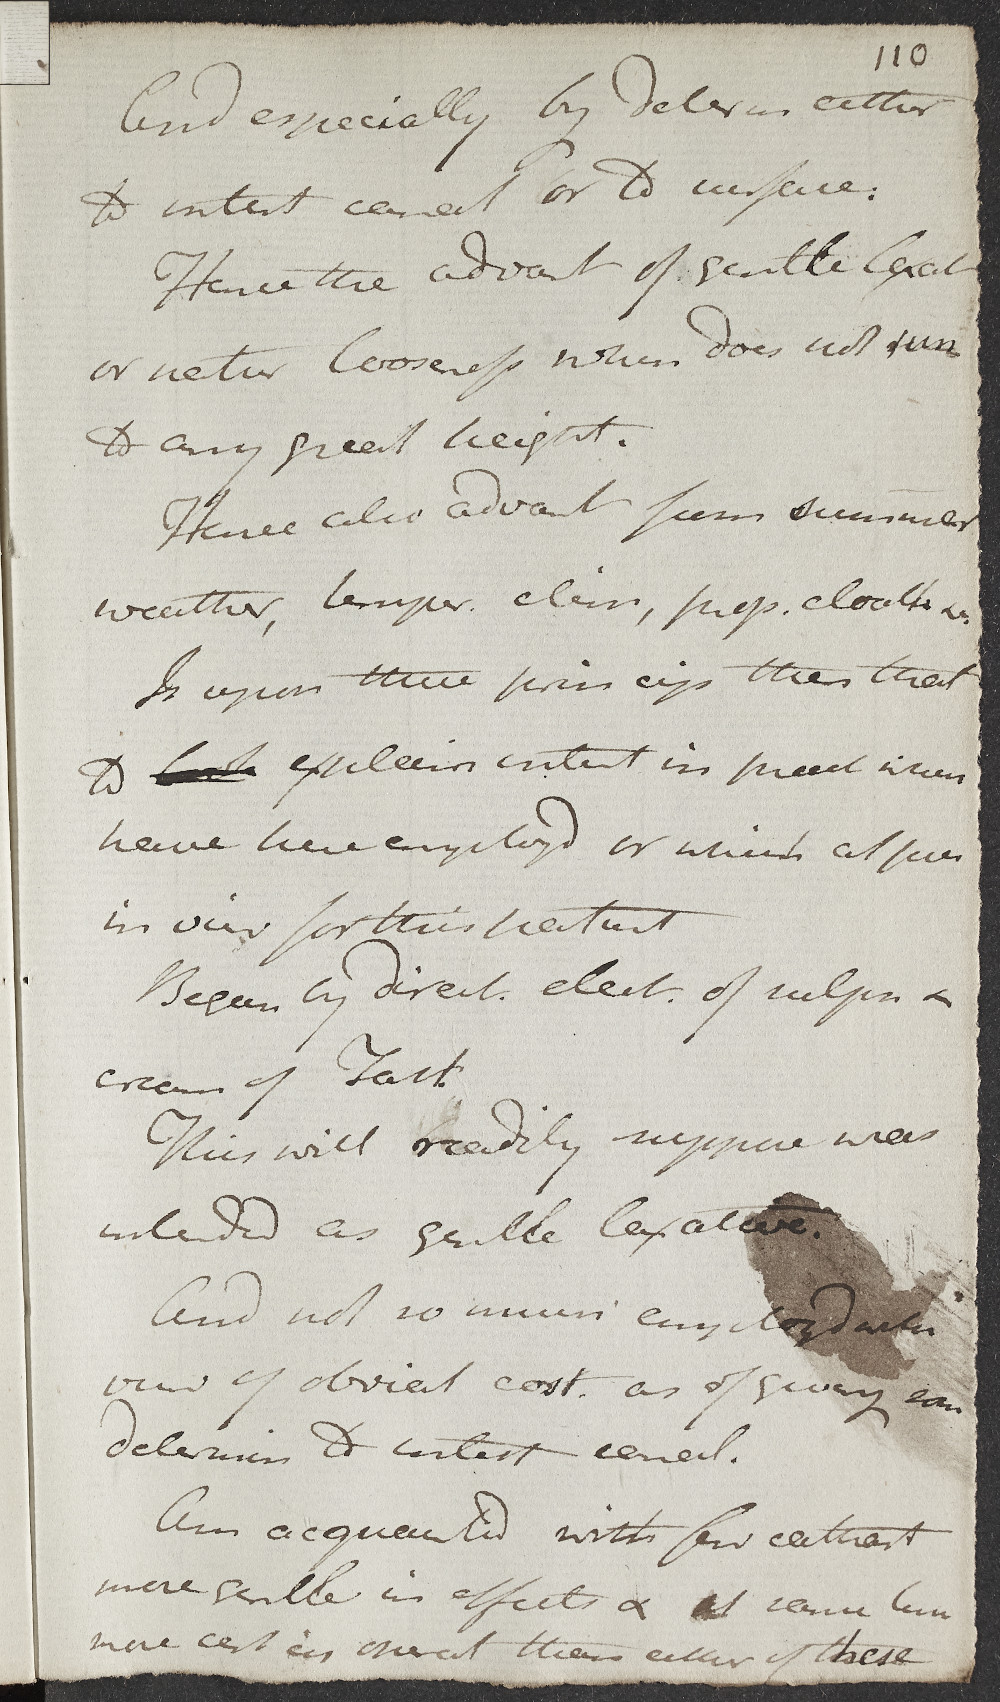 110
And especially by determ either
to intest canal or to surface:
Hence the advant of gentle laxat
or natur looseness when does not run
to any great height.
Hence also advant from summer
weather, temper. clim, prop. cloath &c.
Is upon these princips then that
to explain intent in pract when
have here employd or which at pres
in view for this patient
Began by direct. elect. of sulph &
cream of Tart.
This will readily suppose was
intended as gentle laxative.
And not so much employd with
view of obviat cost. as of giving som
determin to intest canal.
Am acquanted with few cathart
more gentle in effects & at same tim
more cert in operat than either of these